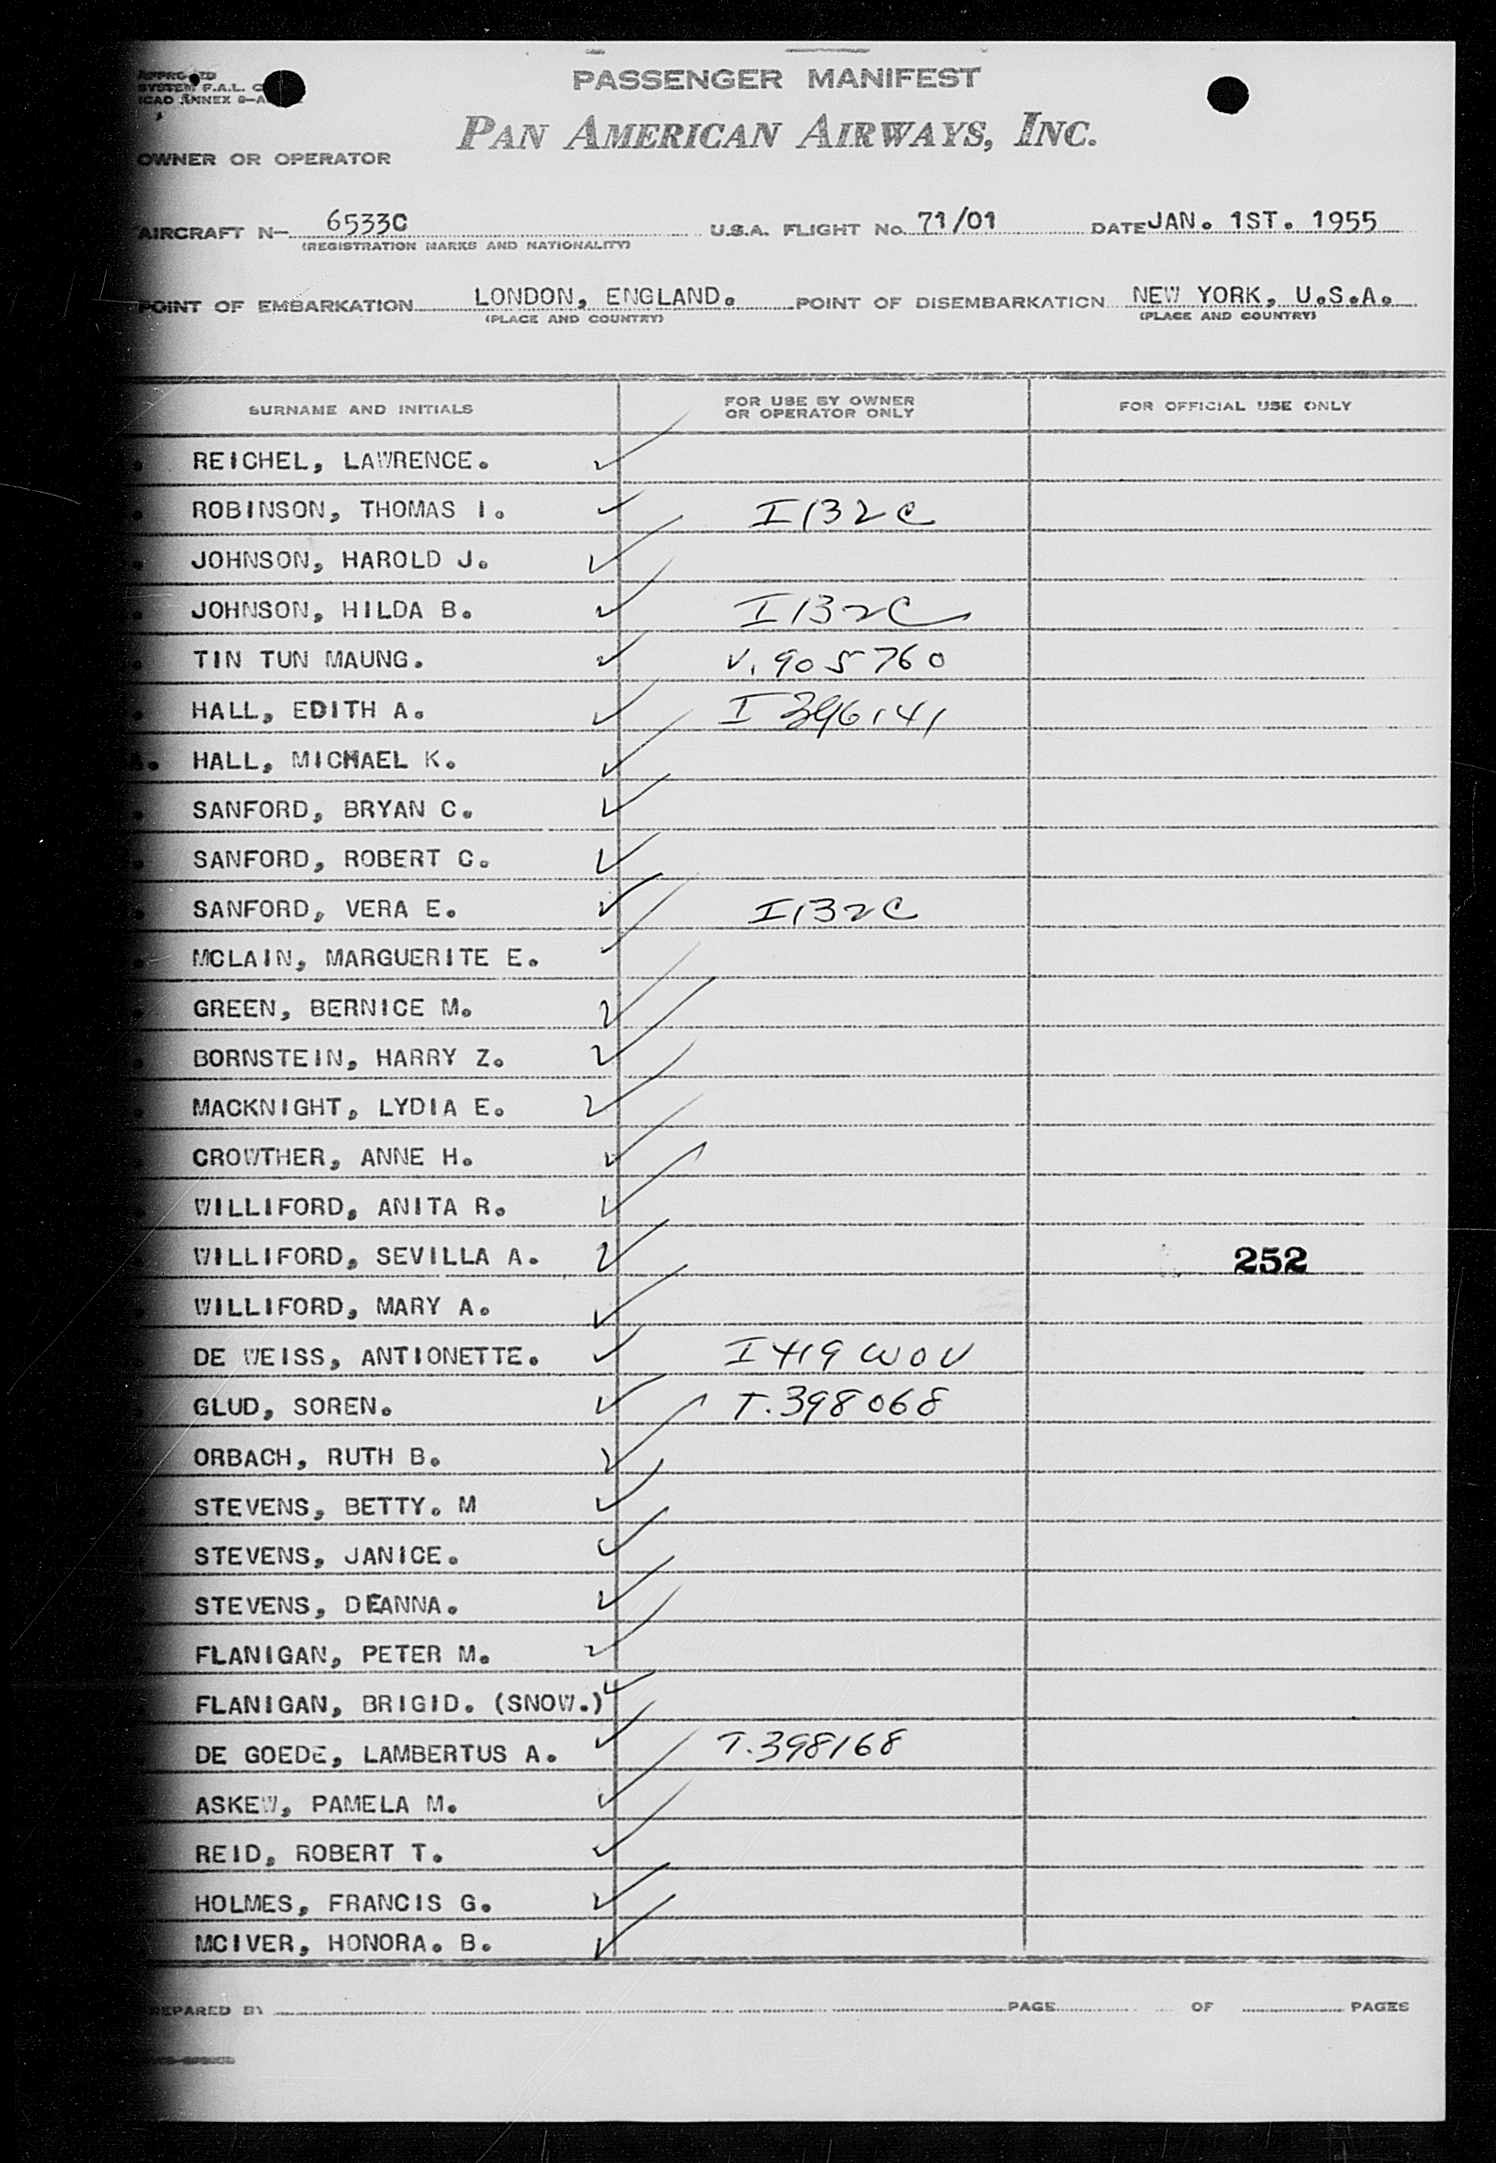 APPROVED
SYSTEM F.A.L.
ICAO ANNEX 9—
PASSENGER MANIFEST
PAN AMERICAN AIRWAYS, INC.
OWNER OR OPERATOR
AIRCRAFT N— 6533C U.S.A. FLIGHT No. 71/01 DATE JAN. 1ST. 1955
(REGISTRATION MARKS AND NATIONALITY)
POINT OF EMBARKATION LONDON, ENGLAND. POINT OF DISEMBARKATION NEW YORK, U.S.A.
(PLACE AND COUNTRY) (PLACE AND COUNTRY)
SURNAME AND INITIALS FOR USE BY OWNER OR OPERATOR ONLY FOR OFFICIAL USE ONLY
REICHEL, LAWRENCE.
ROBINSON, THOMAS I. I132C
JOHNSON, HAROLD J.
JOHNSON, HILDA B. I132C
TIN TUN MAUNG. V.905760
HALL, EDITH A. I396141
HALL, MICHAEL K.
SANFORD, BRYAN C.
SANFORD, ROBERT C.
SANFORD, VERA E. I132C
MCLAIN, MARGUERITE E.
GREEN, BERNICE M.
BORNSTEIN, HARRY Z.
MACKNIGHT, LYDIA E.
CROWTHER, ANNE H.
WILLIFORD, ANITA R.
WILLIFORD, SEVILLA A. 252
WILLIFORD, MARY A.
DE WEISS, ANTIONETTE. I419 WOV
GLUD, SOREN. T.398068
ORBACH, RUTH B.
STEVENS, BETTY. M
STEVENS, JANICE.
STEVENS, DEANNA.
FLANIGAN, PETER M.
FLANIGAN, BRIGID. (SNOW.)
DE GOEDE, LAMBERTUS A. T.398168
ASKEW, PAMELA M.
REID, ROBERT T.
HOLMES, FRANCIS G.
MCIVER, HONORA. B.
PREPARED BY PAGE OF PAGES